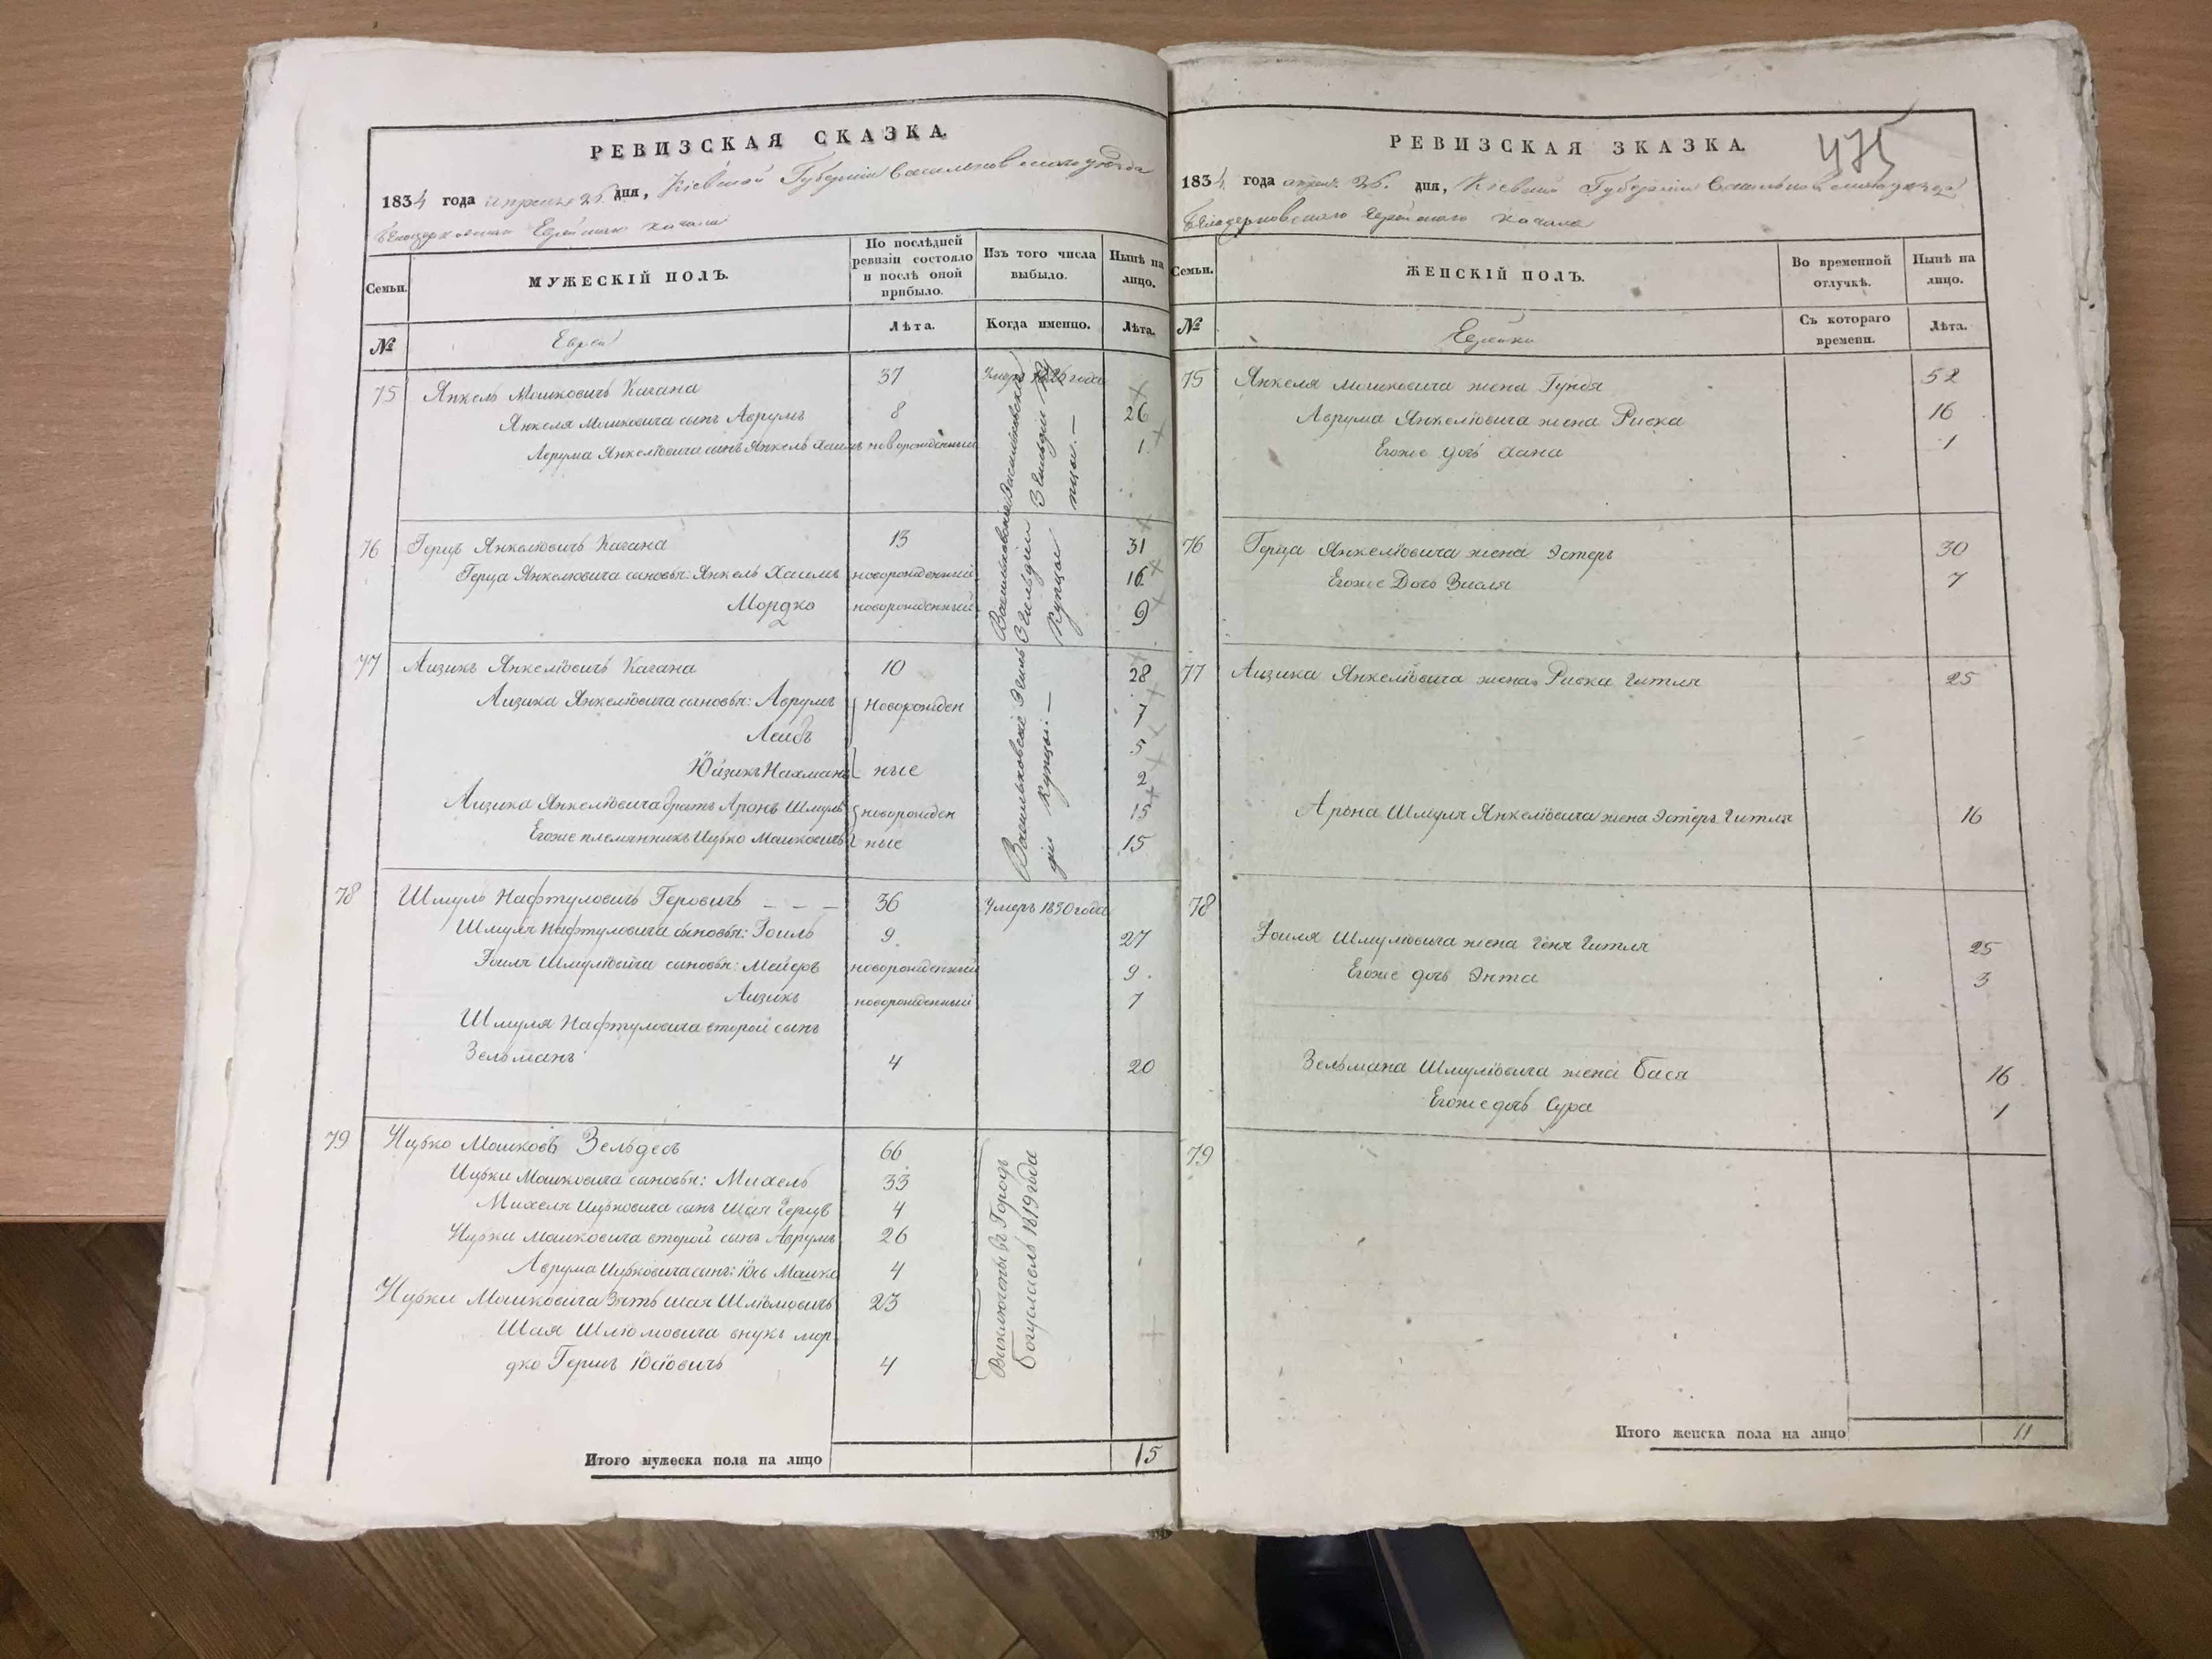 РЕВИЗСКАЯ СКАЗКА.
1834 года апреля 25. дня, Кіевской Губерніи Васильковскаго уезда
Белоцерковскаго Еврейского Кагала
Семьи.
МУЖЕСКІЙ ПОЛЪ.
По послѣдней ревизіи состояло и послѣ оной прибыло.
Изъ того числа выбыло.
Нынѣ на лицо.
№
Евреи
Лѣта.
Когда именно.
Лѣта.
75 Янкель Мошковичъ Кагана 37 Умеръ года
Янкеля Мошковича сынъ Аврумъ 8 26
Аврума Янкелiовича сынъ Янкель Хаимъ новорожденный 1
Васильковскіе 3 Гильдіи купцы.—
76 Герцъ Янкелiовичъ Кагана 13 31
Герца Янкелiовича сыновья: Янкель Хаимъ новорожденный 16
Мордко новорожденный 9
Васильковскіе 3 Гильдіи Купцы
77 Аизикъ Янкелiовичъ Кагана 10 28
Аизика Янкелiовича сыновья: Аврумъ новорожден 7
Лейбъ 5
Юйзикъ Нахманъ ные 2
Аизика Янкелiовича братъ Аронъ Шмуль новорожден 15
Егоже племянникъ Ицько Мошковичъ ные 15
Васильковскіе 3 Гильдіи Купцы —
78 Шмуль Нафтуловичъ Геровичъ — — — 36 Умеръ 1830 года
Шмуля Нафтуловича сыновья: Іоиль 9 27
Іоиля Шмулiовича сыновья: Мейеръ новорожденный 9
Аизикъ новорожденный 7
Шмуля Нафтуловича второй сынъ
Зельманъ 4 20
79 Ицько Мошковъ Зельдесъ 66
Ицьки Мошковича сыновья: Михель 33
Михеля Ицьковича сынъ Шая Герцъ 4
Ицьки Мошковича второй сынъ Аврумъ 26
Аврума Ицьковича сынъ: Юсь Мошко 4
Ицьки Мошковича Зять Шая Шлiомовичъ 23
Шая Шлiомовича внукъ Мор
дко Гершъ Юсiовичъ 4
Виключены въ Городъ Богуславль 1819 года
Итого мужеска пола на лицо 15
РЕВИЗСКАЯ ЗКАЗКА.
475
1834 года апреля 25. дня, Кіевской Губерніи Васильковскаго уезда
Белоцерковскаго Еврейского Кагала
Семьи.
ЖЕНСКІЙ ПОЛЪ.
Во временной отлучкѣ.
Нынѣ на лицо.
№
Еврейки
Съ котораго времени.
Лѣта.
75 Янкеля Мошковича жена Гундя 52
Аврума Янкелiовича жена Ривка 16
Егоже дочь Хана 1
76 Герца Янкелiовича жена Эстеръ 30
Егоже Дочь Зисля 7
77 Аизика Янкелiовича жена Ривка Гитля 25
Арона Шмуля Янкелiовича жена Эстеръ Гитля 16
78
Іоиля Шмулiовича жена Геня Гитля 25
Егоже дочь Энта 3
Зельмана Шмулiовича жена Бася 16
Егоже дочь Сура 1
79
Итого женска пола на лицо 11